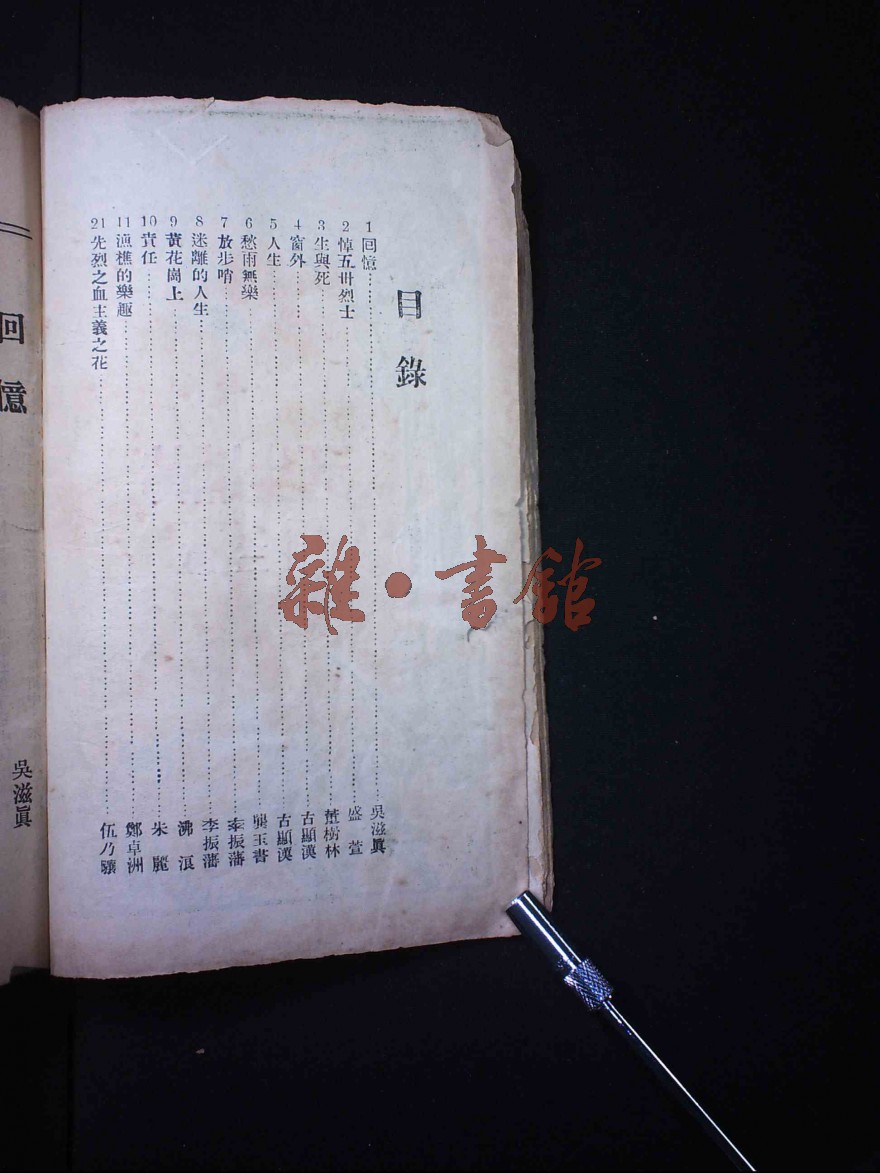 目錄
1 回憶……吳滋眞
2 悼五卅烈士……盛萱
3 生與死……董樹林
4 窗外……古顯漢
5 人生……古顯漢
6 愁雨無樂……龔玉書
7 放步哨……李振藩
8 迷離的人生……李振藩
9 黃花崗上……沸浪
10 責任……朱麗
11 漁樵的樂趣……鄭卓洲
21 先烈之血主義之花……伍乃驤
回憶
吳滋眞
雜•書館